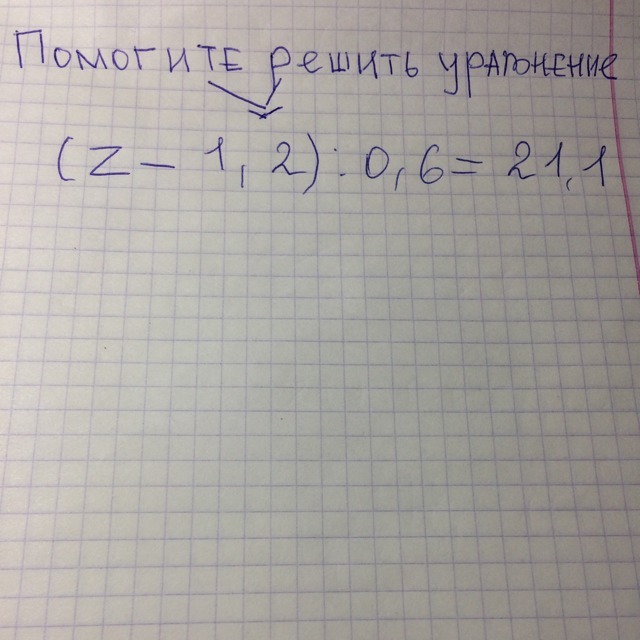 Помогите решить уравнение
(Z - 1,2) : 0,6 = 21,1